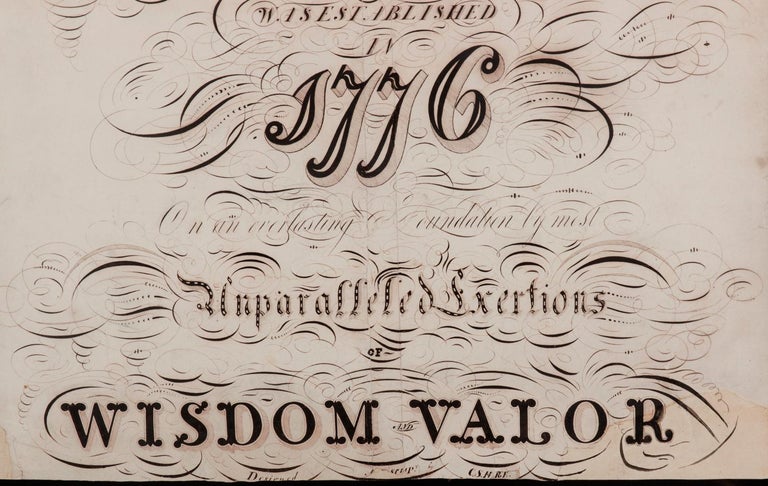 WAS ESTABLISHED
IN
1776
On an everlasting Foundation by most
Unparalleled Exertions
OF
WISDOM AND VALOR
Designed by